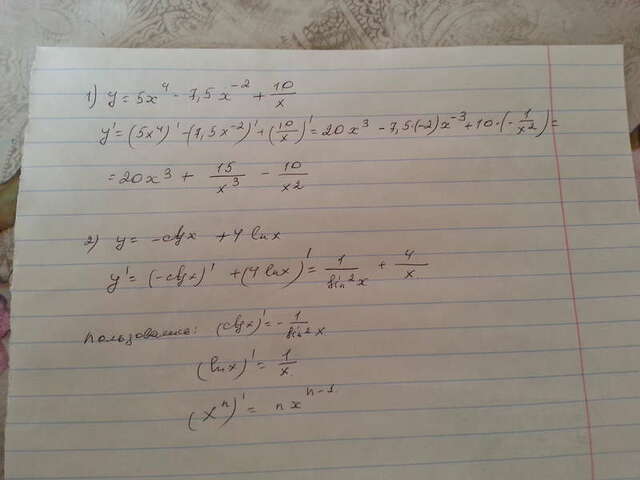 1) y = 5x⁴ - 7,5x⁻² + 10/x
y' = (5x⁴)' - (7,5x⁻²)' + (10/x)' = 20x³ - 7,5(-2)x⁻³ + 10·(-1/x²) =
= 20x³ + 15/x³ - 10/x²
2) y = -ctgx + 4 lnx
y' = (-ctgx)' + (4 lnx)' = 1/sin²x + 4/x
пользовались: (ctgx)' = -1/sin²x.
(lnx)' = 1/x
(xⁿ)' = nxⁿ⁻¹.